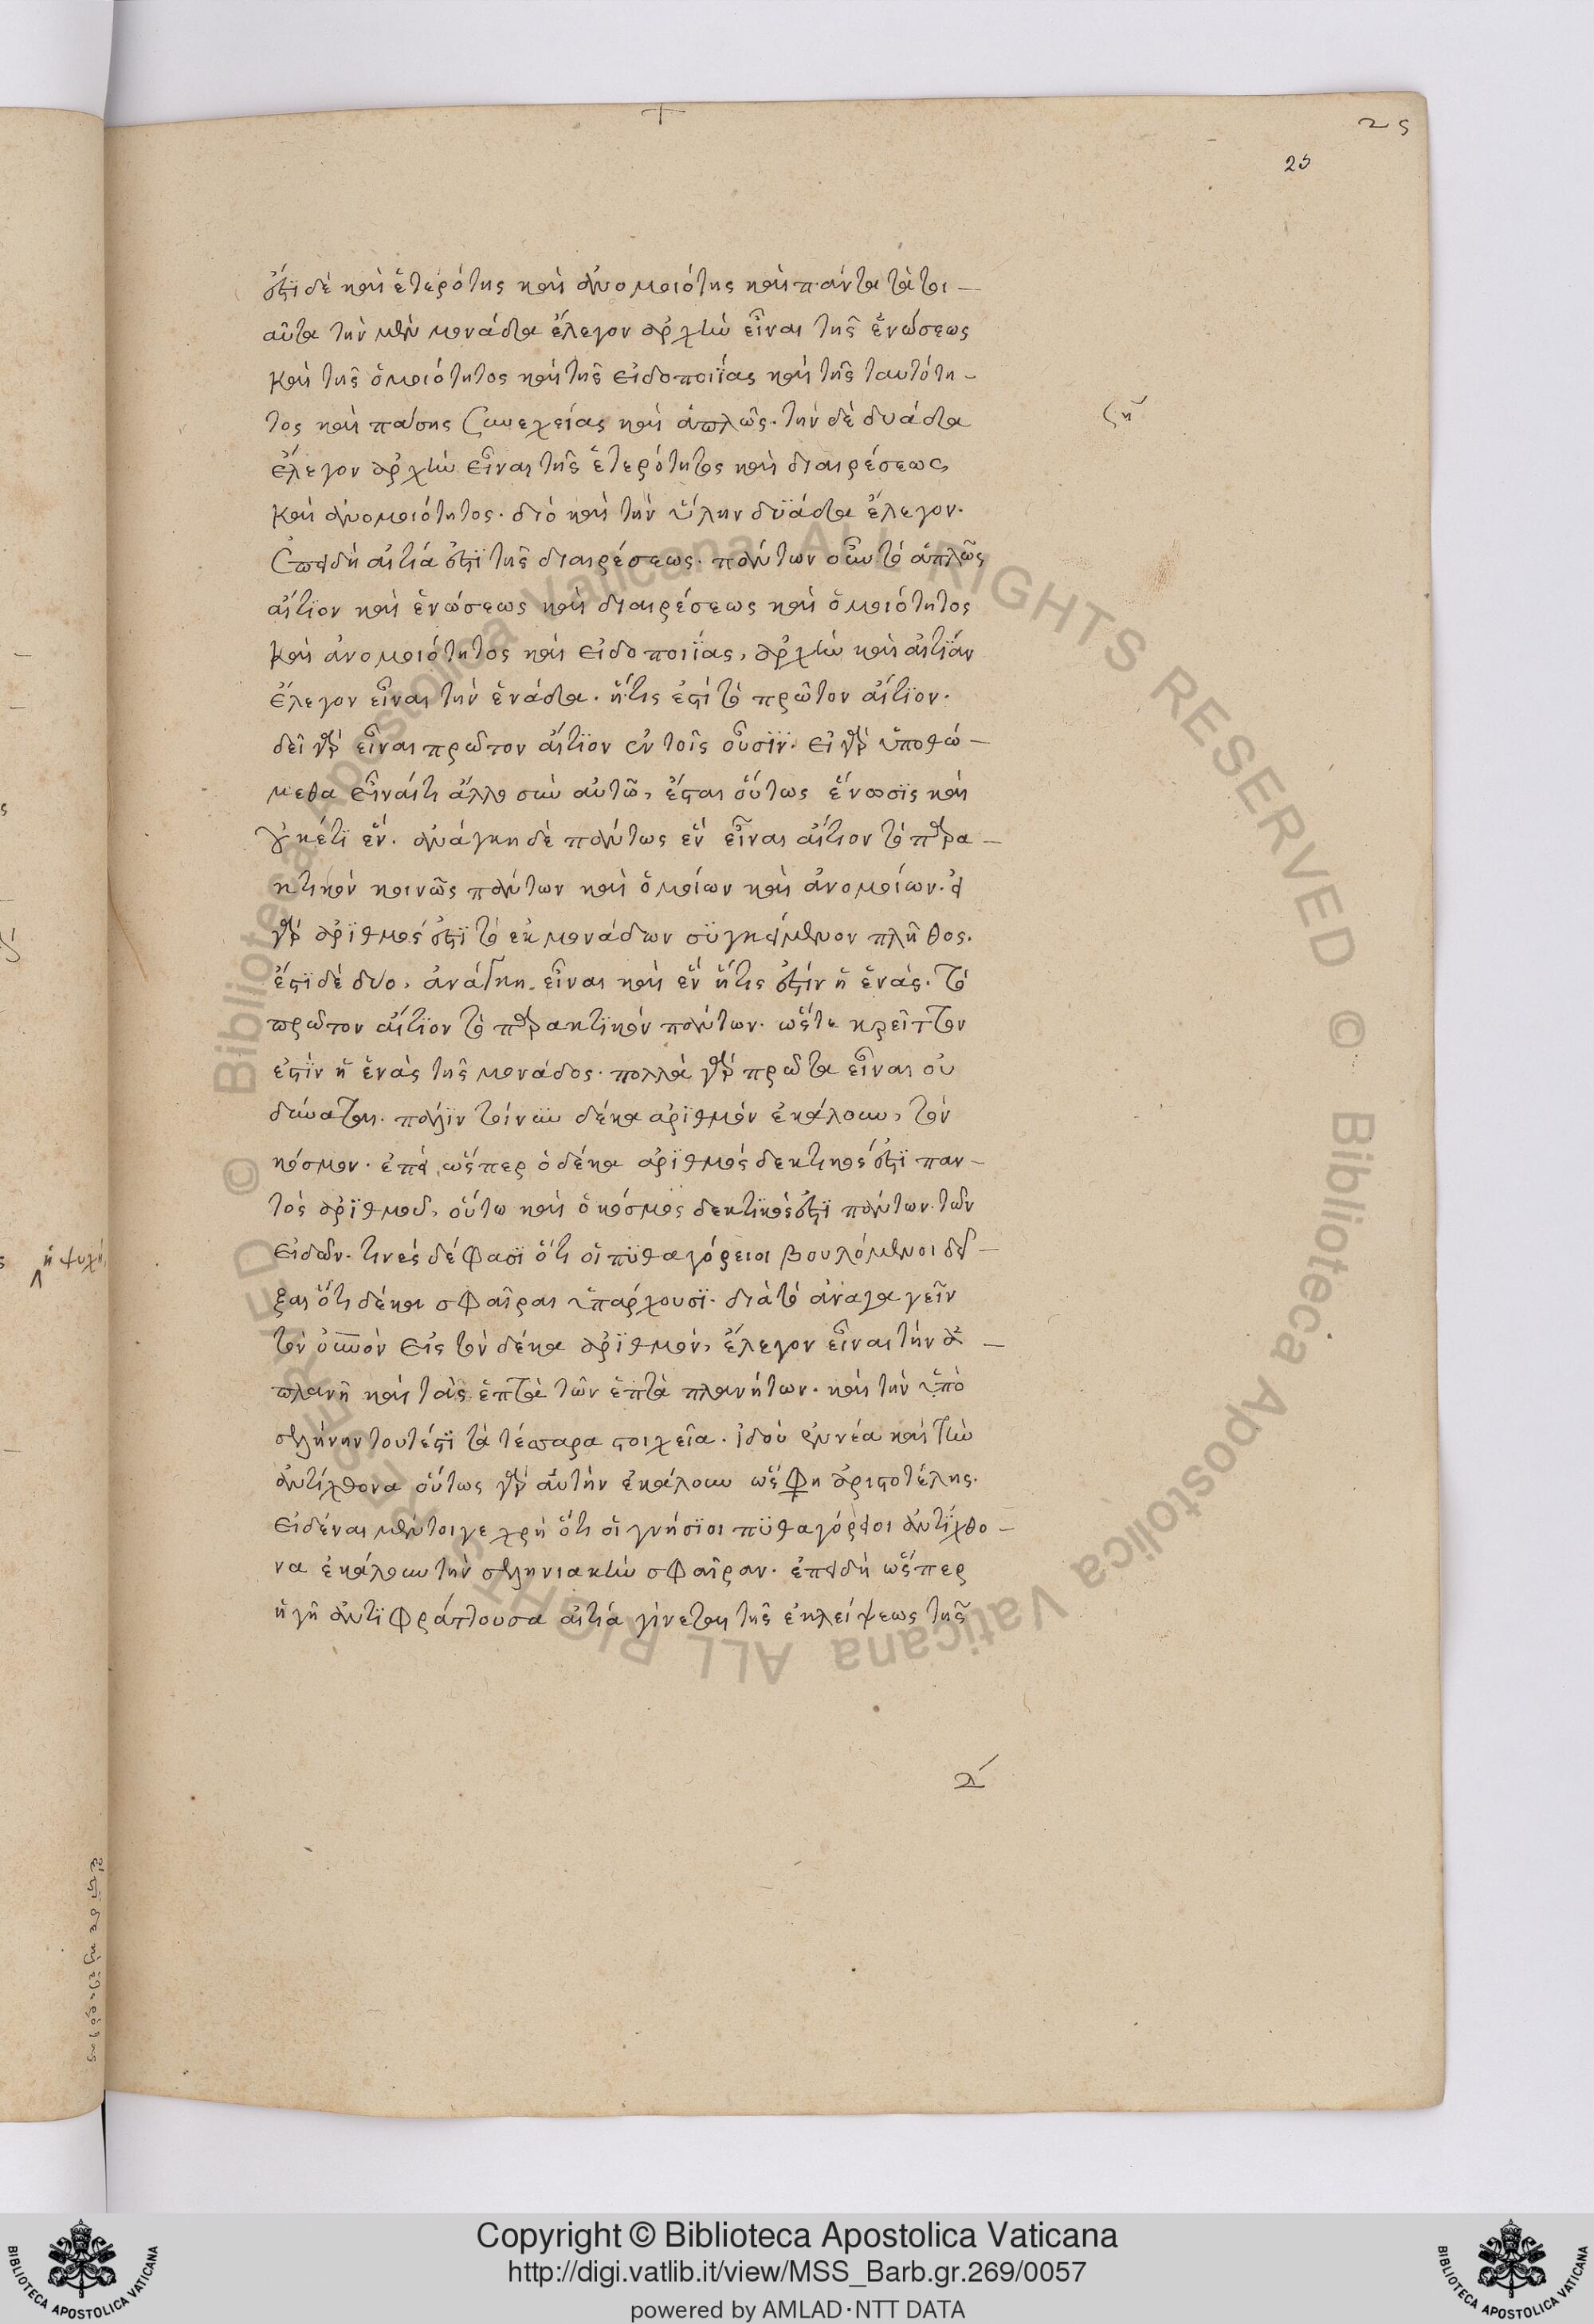 25
25
ἐστὶ δὲ καὶ ἑτερότης καὶ ἀνομοιότης καὶ πάντα τὰ τοι-
αῦτα τὴν μὲν μονάδα ἔλεγον ἀρχὴν εἶναι τῆς ἑνώσεως
καὶ τῆς ὁμοιότητος καὶ τῆς εἰδοποιΐας καὶ τῆς ταυτότη-
τος καὶ πάσης συνεχείας καὶ ἁπλῶς. τὴν δὲ δυάδα
ἔλεγον ἀρχὴν εἶναι τῆς ἑτερότητος καὶ διαιρέσεως
καὶ ἀνομοιότητος. διὸ καὶ τὴν ὕλην δϋάδα ἔλεγον.
ἐπειδὴ αἰτία ἐστὶ τῆς διαιρέσεως. πάντων οὖν τὸ ἁπλῶς
αἴτιον καὶ ἑνώσεως καὶ διαιρέσεως καὶ ὁμοιότητος
καὶ ἀνομοιότητος καὶ εἰδοποιΐας, ἀρχὴν καὶ αἰτίαν
ἔλεγον εἶναι τὴν ἑνάδα. ἥτις ἐστὶ τὸ πρῶτον αἴτϊον.
δεῖ γὰρ εἶναι πρῶτον αἴτϊον ἐν τοῖς οὖσϊν. εἰ γὰρ ὑποθώ-
μεθα εἶναί τι ἄλλο σὺν αὐτῶ, ἔσται οὕτως ἕνωσϊς καὶ
οὐκέτϊ ἕν. ἀνάγκη δὲ πάντως ἓν εἶναι αἴτιον τὸ παρα-
κτικὸν κοινῶς πάντων καὶ ὁμοίων καὶ ἀνομοίων. εἰ
γὰρ ἀρϊθμός ἐστὶ τὸ ἐκ μονάδων συγκείμενον πλῆθος.
ἔστϊ δὲ δύο, ἀνάγκη εἶναι καὶ ἓν ἥτις ἐστὶν ἡ ἑνάς. τὸ
πρῶτον αἴτϊον τὸ παρακτϊκὸν πάντων. ὥστε κρεῖττον
ἐστὶν ἡ ἑνὰς τῆς μονάδος. πολλὰ γὰρ πρῶτα εἶναι οὐ
δύναται. πάλϊν τοίνυν δέκα ἀρϊθμὸν ἐκάλουν, τὸν
κόσμον. ἐπεὶ, ὥσπερ ὁ δέκα ἀρϊθμός δεκτικός ἐστὶ παν-
τὸς ἀρϊθμοῦ, οὕτω καὶ ὁ κόσμος δεκτϊκός ἐστὶ πάντων τῶν
εἰδῶν. τινὲς δέ φασϊ ὅτι οἱ πϋθαγόρειοι βουλόμενοι δεῖ-
ξαι ὅτι δέκα σφαῖραι ὑπάρχουσϊ. διὰ τὸ ἀναγαγεῖν
τὸν οὐρανὸν εἰς τὸν δέκα ἀρϊθμὸν, ἔλεγον εἶναι τὴν ἀ-
πλανῆ καὶ τὰς ἑπτὰ τῶν ἑπτὰ πλανήτων. καὶ τὴν ὑπὸ
σελήνην τουτέστϊ τὰ τέσσαρα στοιχεῖα. ἰδοὺ ἐννέα καὶ τὴν
ἀντίχθονα οὕτως γὰρ αὐτὴν ἐκάλουν ὥς φη ἀριστοτέλης.
εἰδέναι μέντοιγε χρὴ ὅτι οἱ γνήσϊοι πϋθαγόρειοι ἀντίχθο-
να ἐκάλουν τὴν σεληνιακὴν σφαῖραν. ἐπειδὴ ὥσπερ
ἡ γῆ ἀντϊφράττουσα αἰτία γίνεται τῆς ἐκλείψεως τῆς
ἡ ψυχὴ
Copyright © Biblioteca Apostolica Vaticana
http://digi.vatlib.it/view/MSS_Barb.gr.269/0057
powered by AMLAD·NTT DATA
BIBLIOTECA APOSTOLICA VATICANA
BIBLIOTECA APOSTOLICA VATICANA
© Biblioteca Apostolica Vaticana ALL RIGHTS RESERVED © Biblioteca Apostolica Vaticana ALL RIGHTS RESERVED